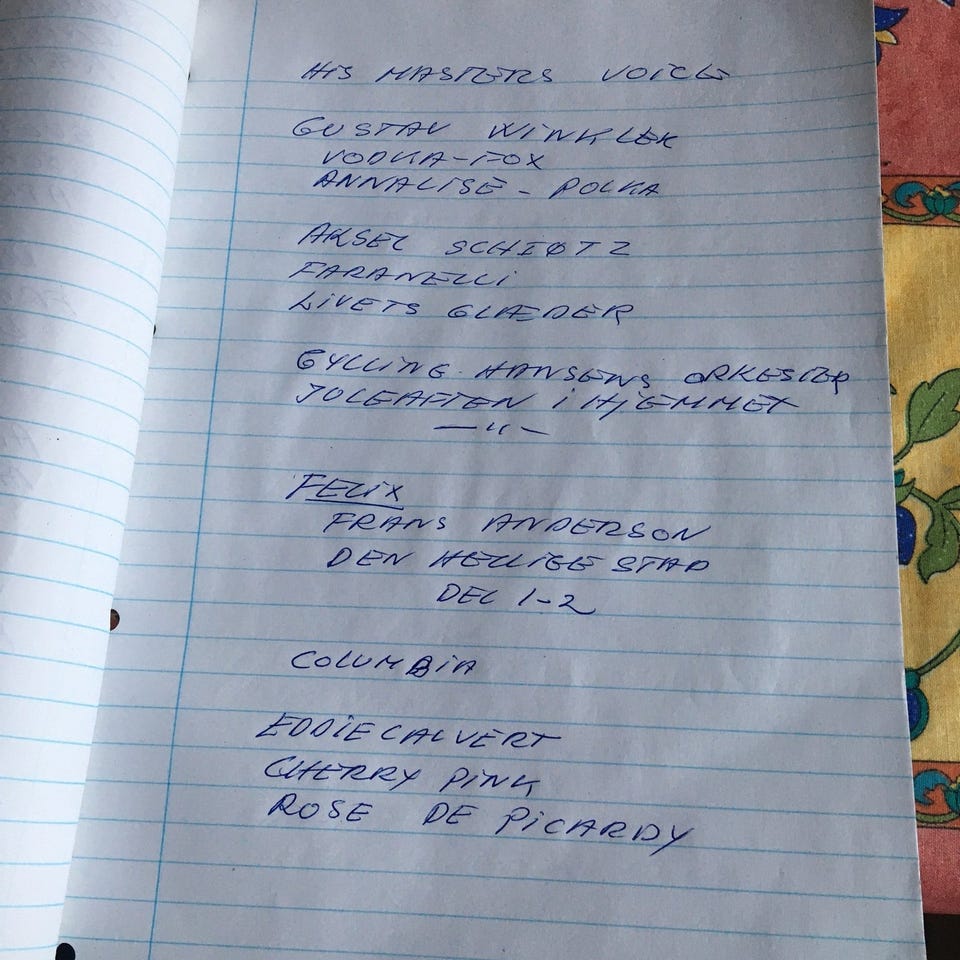 HIS MASTERS VOICE
GUSTAV WINKLER
VODKA-FOX
ANNALISE - POLKA
AKSEL SCHIØTZ
FARANELLI
LIVETS GLÆDER
GYLLING HANSENS ORKESTER
JULEAFTEN I HJEMMET
— " —
FELIX
FRANS ANDERSON
DEN HELLIGE STAD
DEL 1-2
COLUMBIA
EDDIE CALVERT
CHERRY PINK
ROSE DE PICARDY